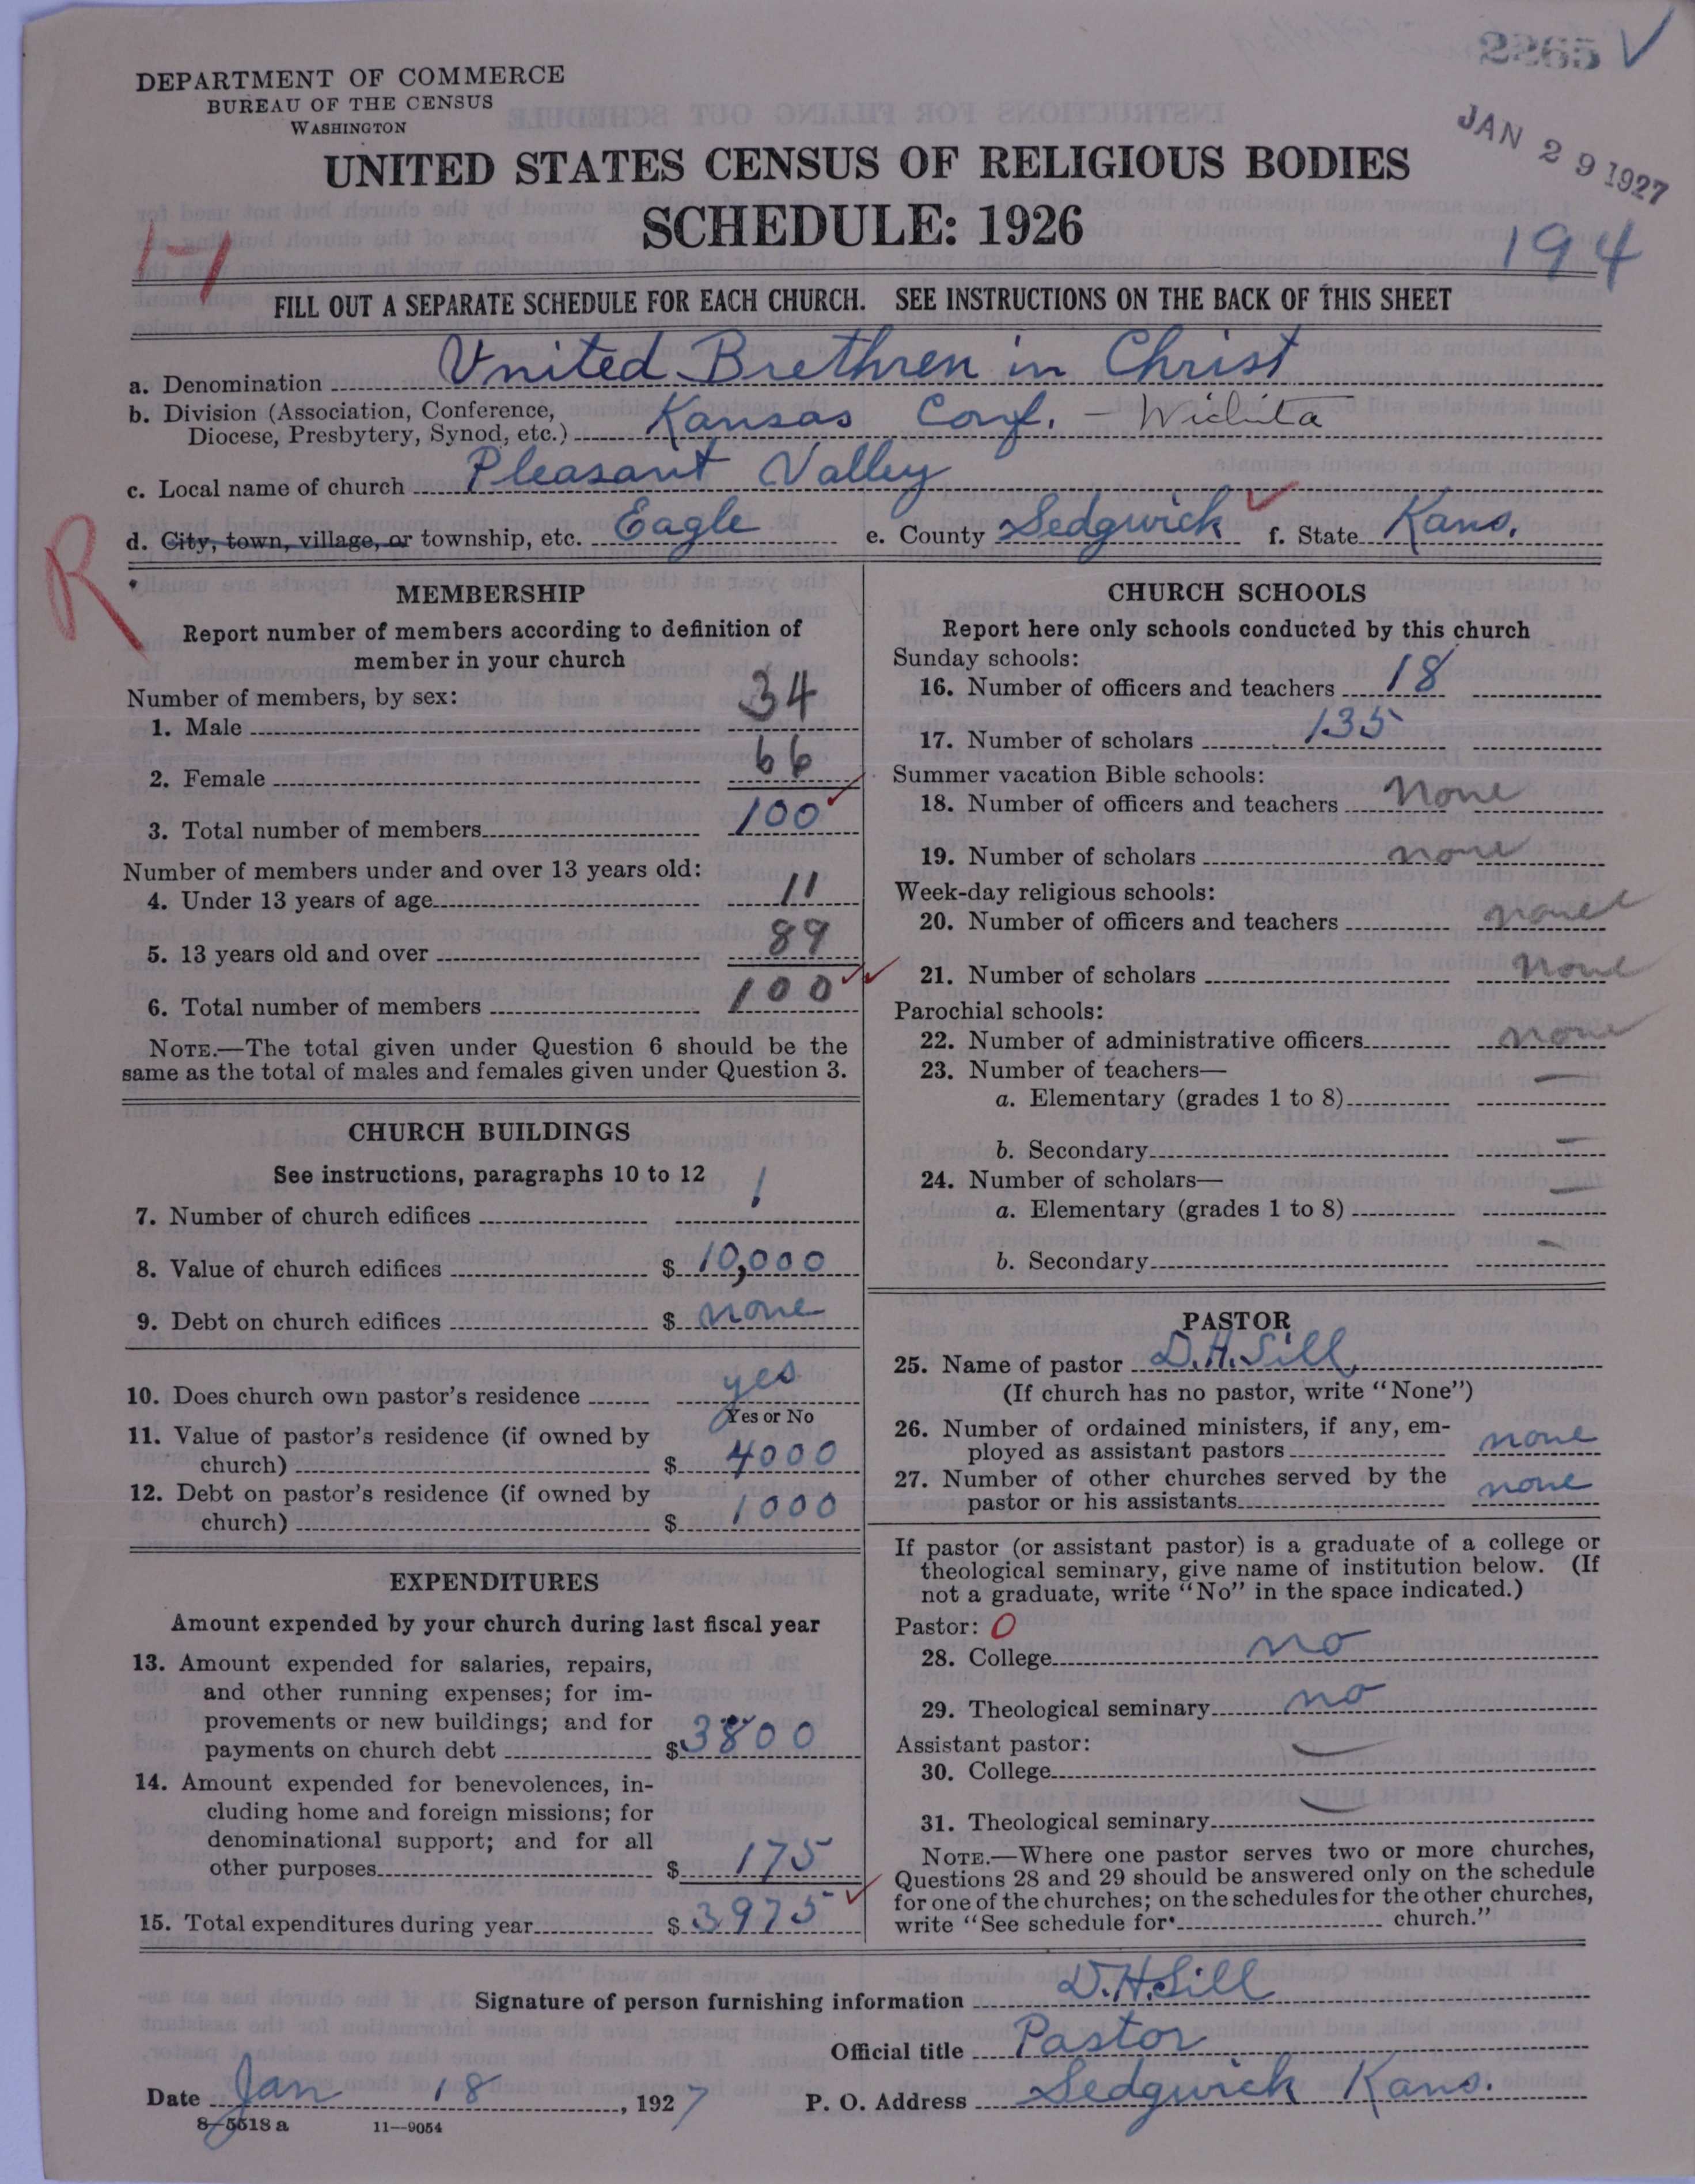 2265 ✓
DEPARTMENT OF COMMERCE
BUREAU OF THE CENSUS
WASHINGTON
JAN 29 1927
UNITED STATES CENSUS OF RELIGIOUS BODIES
SCHEDULE: 1926
194
FILL OUT A SEPARATE SCHEDULE FOR EACH CHURCH. SEE INSTRUCTIONS ON THE BACK OF THIS SHEET
a. Denomination United Brethren in Christ
b. Division (Association, Conference,
Diocese, Presbytery, Synod, etc.) Kansas Conf. – Wichita
c. Local name of church Pleasant Valley
d. City, town, village, or township, etc. Eagle e. County Sedgwick ✓ f. State Kans.
R
MEMBERSHIP
Report number of members according to definition of
member in your church
Number of members, by sex:
1. Male 34
2. Female 66
3. Total number of members 100 ✓
Number of members under and over 13 years old:
4. Under 13 years of age 11
5. 13 years old and over 89
6. Total number of members 100 ✓✓
NOTE.—The total given under Question 6 should be the
same as the total of males and females given under Question 3.
CHURCH BUILDINGS
See instructions, paragraphs 10 to 12
7. Number of church edifices 1
8. Value of church edifices $ 10,000
9. Debt on church edifices $ none
10. Does church own pastor's residence yes
Yes or No
11. Value of pastor's residence (if owned by
church) $ 4000
12. Debt on pastor's residence (if owned by
church) $ 1000
EXPENDITURES
Amount expended by your church during last fiscal year
13. Amount expended for salaries, repairs,
and other running expenses; for im-
provements or new buildings; and for
payments on church debt $ 3800
14. Amount expended for benevolences, in-
cluding home and foreign missions; for
denominational support; and for all
other purposes $ 175
15. Total expenditures during year $ 3975 ✓
CHURCH SCHOOLS
Report here only schools conducted by this church
Sunday schools:
16. Number of officers and teachers 18
17. Number of scholars 135
Summer vacation Bible schools:
18. Number of officers and teachers none
19. Number of scholars none
Week-day religious schools:
20. Number of officers and teachers none
21. Number of scholars none
Parochial schools:
22. Number of administrative officers none
23. Number of teachers—
a. Elementary (grades 1 to 8) —
b. Secondary —
24. Number of scholars—
a. Elementary (grades 1 to 8) —
b. Secondary —
PASTOR
25. Name of pastor D. H. Sill
(If church has no pastor, write "None")
26. Number of ordained ministers, if any, em-
ployed as assistant pastors none
27. Number of other churches served by the
pastor or his assistants none
If pastor (or assistant pastor) is a graduate of a college or
theological seminary, give name of institution below. (If
not a graduate, write "No" in the space indicated.)
Pastor: 0
28. College no
29. Theological seminary no
Assistant pastor:
30. College —
31. Theological seminary —
NOTE.—Where one pastor serves two or more churches,
Questions 28 and 29 should be answered only on the schedule
for one of the churches; on the schedules for the other churches,
write "See schedule for church."
Signature of person furnishing information D. H. Sill
Official title Pastor
Date Jan 18, 1927 P. O. Address Sedgwick Kans.
8-5518 a 11—9054